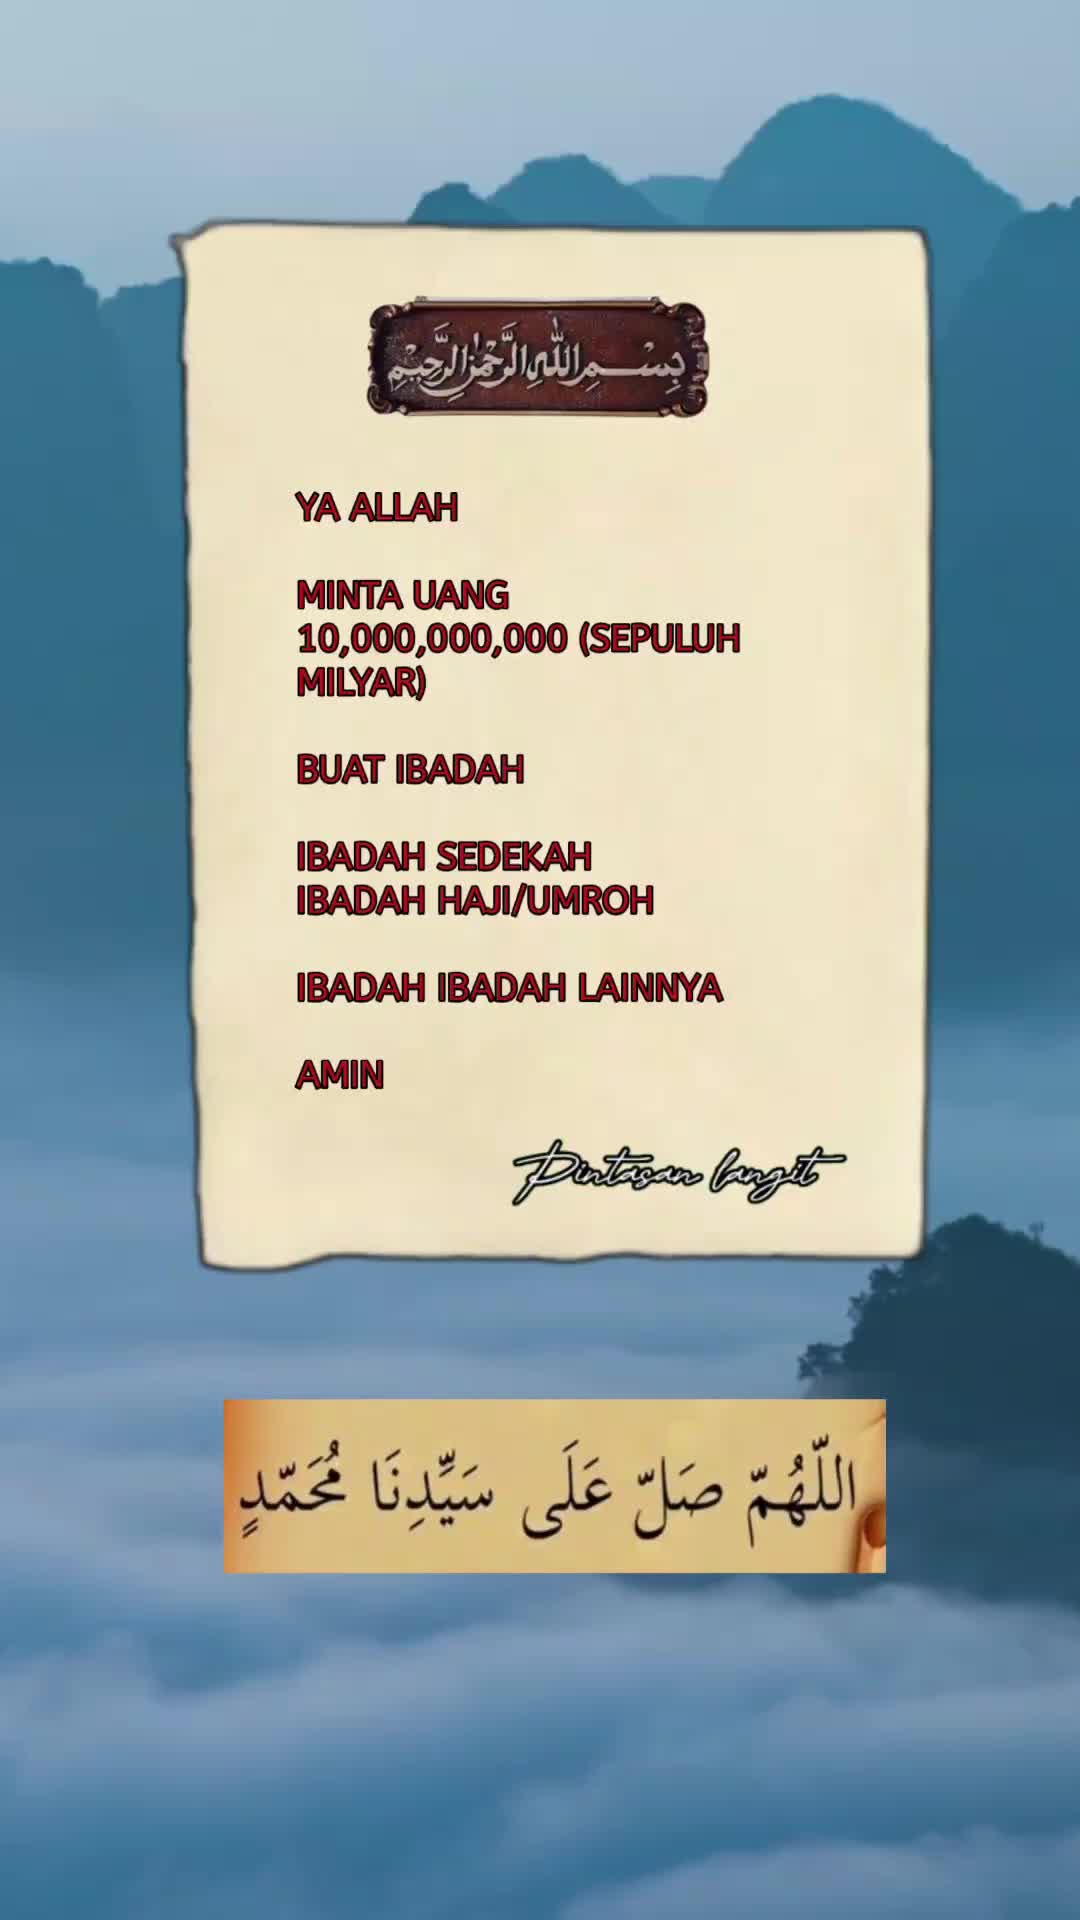 بِسْمِ اللهِ الرَّحْمٰنِ الرَّحِيْمِ
YA ALLAH
MINTA UANG
10,000,000,000 (SEPULUH
MILYAR)
BUAT IBADAH
IBADAH SEDEKAH
IBADAH HAJI/UMROH
IBADAH IBADAH LAINNYA
AMIN
Pintasan langit
اللّهُمّ صَلّ عَلَى سَيِّدِنَا مُحَمّدٍ